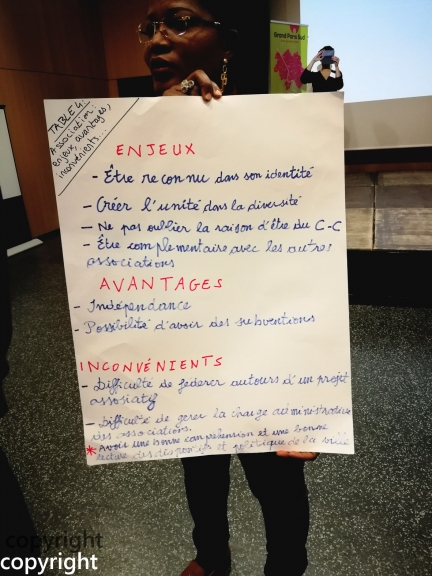 Grand Paris Sud
TABLE 4
Association:
enjeux, avantages,
inconvénients...
ENJEUX
- Être reconnu dans son identité
- Créer l'unité dans la diversité
- Ne pas oublier la raison d'être du C-C
- Être complémentaire avec les autres
associations
AVANTAGES
- Indépendance
- Possibilité d'avoir des subventions
INCONVÉNIENTS
- Difficulté de féderer autours d'un projet
assosiatif
- Difficulté de gerer la charge administrative
des associations.
* Avoir une bonne compréhension et une bonne
lecture des dispositifs et politique de la ville
copyright
copyright